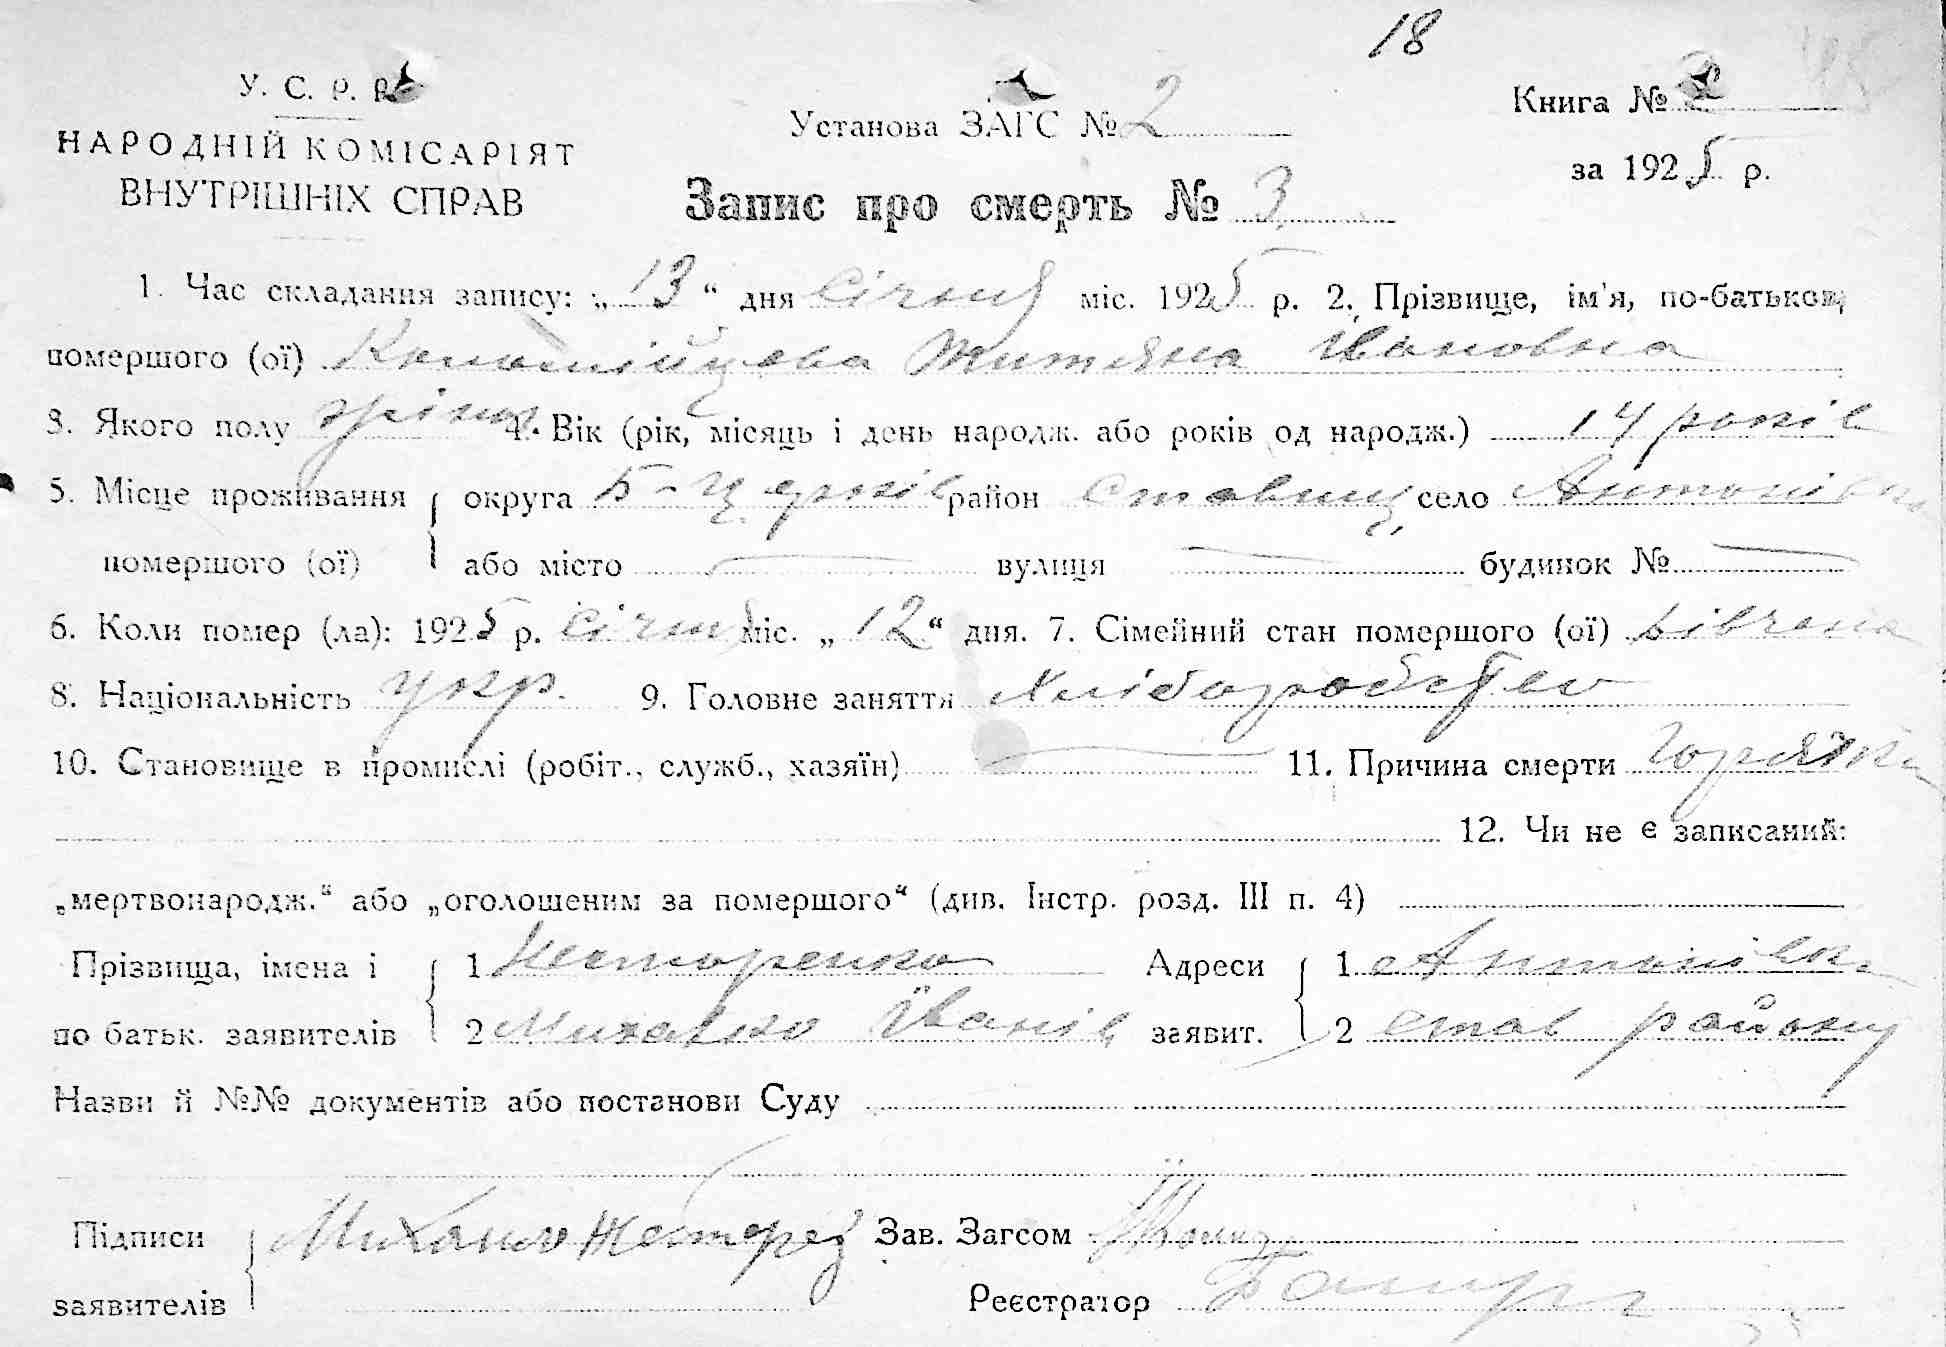 18
У. С. Р. Р.
НАРОДНІЙ КОМІСАРІЯТ
ВНУТРІШНІХ СПРАВ
Установа ЗАГС № 2
Книга №
за 1925 р.
Запис про смерть № 3
1. Час складання запису: „13“ дня січня міс. 1925 р. 2. Прізвище, ім'я, по-батькові
помершого (ої) Коломійцова Титяна Івановна
3. Якого полу жіноч 4. Вік (рік, місяць і день народж. або років од народж.) 14 років
5. Місце проживання округа Б-Церків район Ставищ село Антонівка
помершого (ої) або місто вулиця будинок №
6. Коли помер (ла): 1925 р. січня міс. „12“ дня. 7. Сімейний стан помершого (ої) дівчина
8. Національність укр. 9. Головне заняття Хліборобство
10. Становище в промислі (робіт., служб., хазяїн) 11. Причина смерти Горячка
12. Чи не є записаний:
„мертвонародж.“ або „оголошеним за помершого“ (див. Інстр. розд. III п. 4)
Прізвища, імена і 1 Несторенко Адреси 1 Антонівка
по батьк. заявителів 2 Михайло Іванів заявит. 2 Став району
Назви й №№ документів або постанови Суду
Підписи Михайло Нестере Зав. Загсом
заявителів Реєстратор